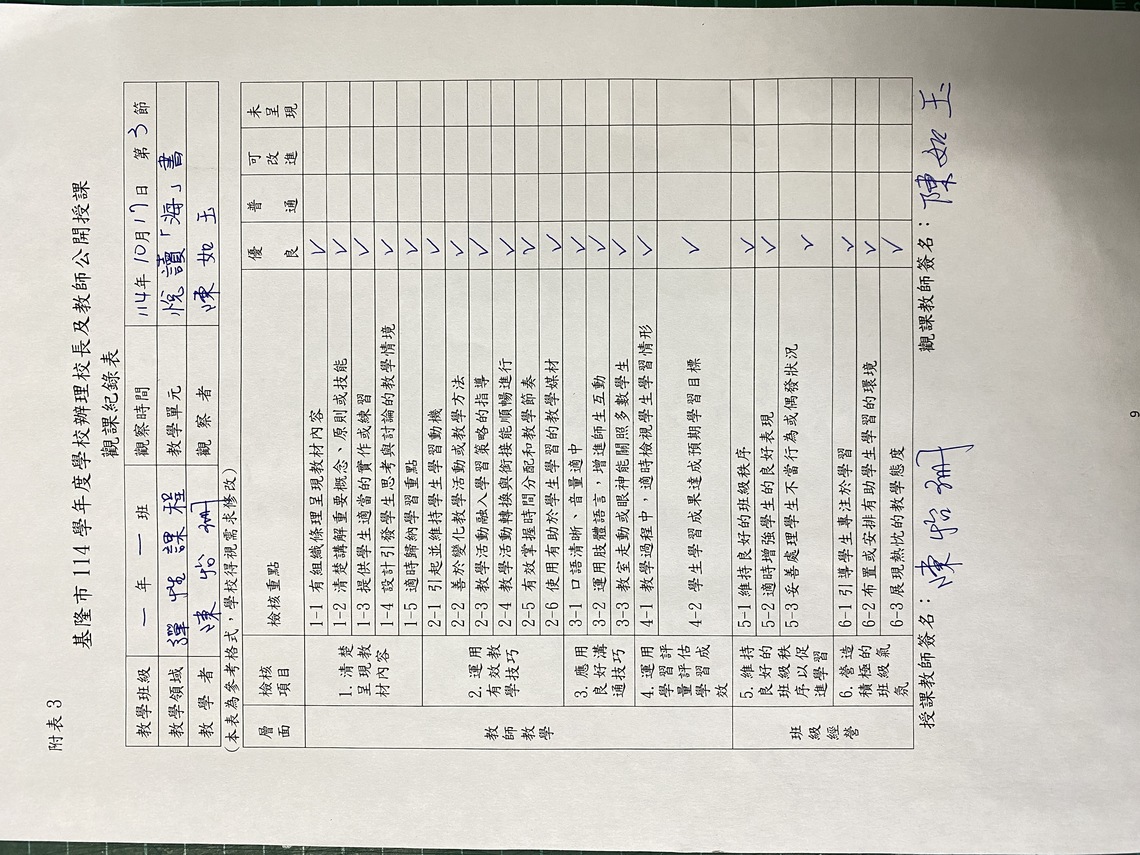 附表 3
基隆市 114 學年度學校辦理校長及教師公開授課
觀課紀錄表
教學班級 一 年 一 班 觀察時間 114年 10月 17日 第 3 節
教學領域 彈性課程 教學單元 悅讀「海」書
教學者 陳怡珊 觀察者 陳如玉
(本表為參考格式，學校得視需求修改)
層面 檢核項目 檢核重點 優良 普通 可改進 未呈現
教師教學
1. 清楚呈現教材內容
1-1 有組織條理呈現教材內容 ✓
1-2 清楚講解重要概念、原則或技能 ✓
1-3 提供學生適當的實作或練習 ✓
1-4 設計引發學生思考與討論的教學情境 ✓
1-5 適時歸納學習重點 ✓
2. 運用有效教學技巧
2-1 引起並維持學生學習動機 ✓
2-2 善於變化教學活動或教學方法 ✓
2-3 教學活動融入學習策略的指導 ✓
2-4 教學活動轉換與銜接能順暢進行 ✓
2-5 有效掌握時間分配和教學節奏 ✓
2-6 使用有助於學生學習的教學媒材 ✓
3. 應用良好溝通技巧
3-1 口語清晰、音量適中 ✓
3-2 運用肢體語言，增進師生互動 ✓
3-3 教室走動或眼神能關照多數學生 ✓
4. 運用學習評量評估學習成效
4-1 教學過程中，適時檢視學生學習情形 ✓
4-2 學生學習成果達成預期學習目標 ✓
班級經營
5. 維持良好的班級秩序以促進學習
5-1 維持良好的班級秩序 ✓
5-2 適時增強學生的良好表現 ✓
5-3 妥善處理學生不當行為或偶發狀況 ✓
6. 營造積極的班級氣氛
6-1 引導學生專注於學習 ✓
6-2 布置或安排有助學生學習的環境 ✓
6-3 展現熱忱的教學態度 ✓
授課教師簽名：陳怡珊 觀課教師簽名：陳如玉
9